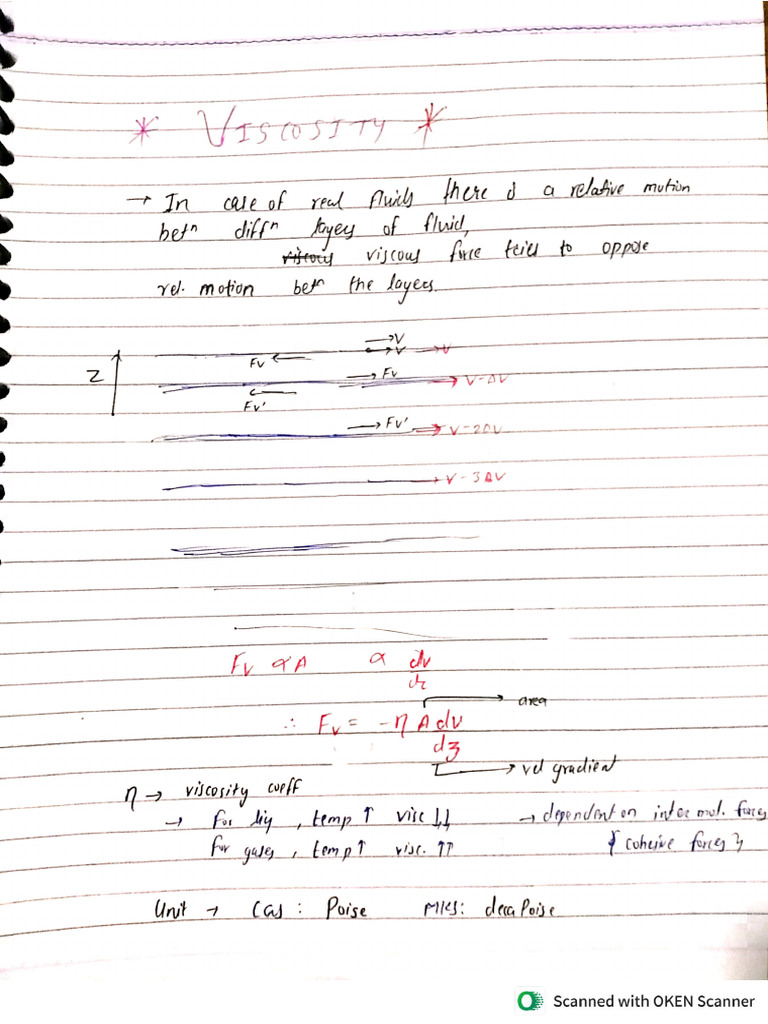 * VISCOSITY *
→ In case of real fluids there is a relative motion
betⁿ diffⁿ layers of fluid,
viscous viscous force tries to oppose
rel. motion betⁿ the layers.
→V
→V →V
Fv ←
Z → Fv → V-ΔV
← Fv'
→ Fv' → V-2ΔV
→ V-3ΔV
Fv ∝ A ∝ dv/dz
→ area
∴ Fv = -η A dv/dz
→ vel gradient
η → viscosity coeff
→ For liq, temp ↑ visc ↓↓ → dependent on inter mol. forces
For gases, temp ↑ visc. ↑↑ { cohesive forces }
Unit → CGS : Poise MKS: decaPoise
Scanned with OKEN Scanner